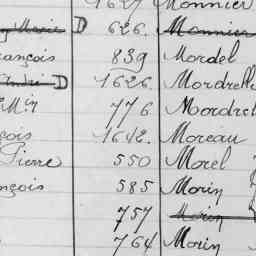 1627 Monnier
Marie D 626. Monnier
rançois 839 Mordel
André D 1626. Mordrelle
Mir 776 Mordrel
çois 1642. Moreau
Pierre 550 Morel
nçois 585 Morin
757 Morin
764 Morin